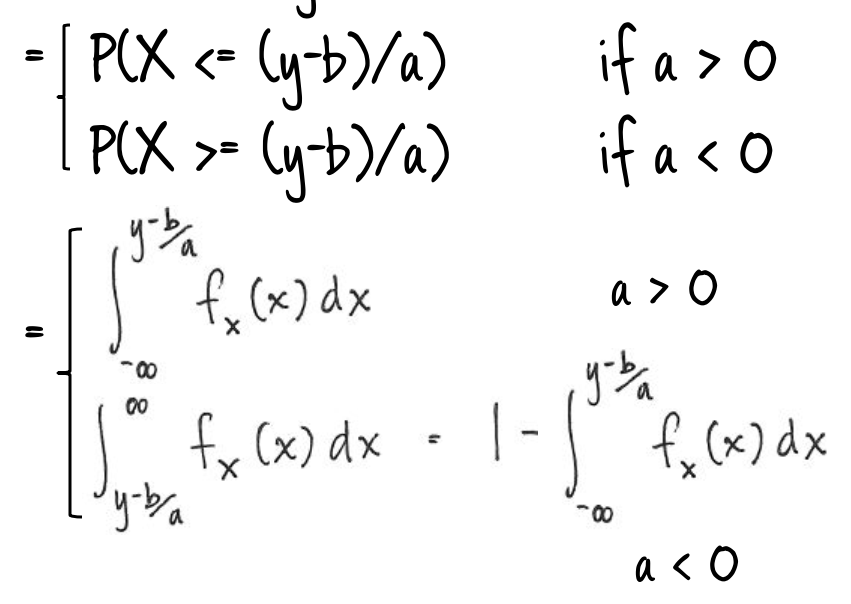 y
= [ P(X <= (y-b)/a) if a > 0
P(X >= (y-b)/a) if a < 0
= [ ∫_{-∞}^{y-b/a} f_x (x) dx a > 0
∫_{y-b/a}^{∞} f_x (x) dx = 1 - ∫_{-∞}^{y-b/a} f_x (x) dx
a < 0